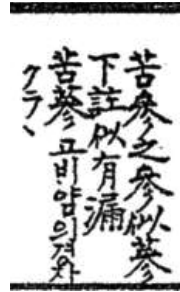 苦參之參似蔘
下註似有漏
苦蔘 고비얌의정자
クララ